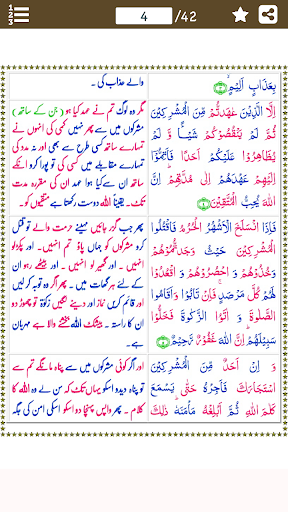 4 /42
بِعَذَابٍ اَلِیۡمٍ ۙ﴿۳﴾
والے عذاب کی ۔
اِلَّا الَّذِیۡنَ عٰهَدۡتُّمۡ مِّنَ الۡمُشۡرِکِیۡنَ
ثُمَّ لَمۡ یَنۡقُصُوۡکُمۡ شَیۡـًٔا وَّ لَمۡ
یُظَاهِرُوۡا عَلَیۡکُمۡ اَحَدًا فَاَتِمُّوۡۤا
اِلَیۡهِمۡ عَهۡدَهُمۡ اِلٰی مُدَّتِهِمۡ ؕ اِنَّ
اللّٰهَ یُحِبُّ الۡمُتَّقِیۡنَ ﴿۴﴾
مگر وہ لوگ تم نے عہد کیا ہو (جن کے ساتھ )
مشرکوں میں سے پھر نہیں کمی کی انہوں نے
تمہارے ساتھ کسی طرح سے بھی اور نہ مدد کی
تمہارے مقابلے میں کسی کی تو پورا کرو انکے
ساتھ ان سے کیا ہوا عہد ان کی مقررہ مدت
تک۔ یقیناً اللہ دوست رکھتا ہے متقیوں کو۔
فَاِذَا انۡسَلَخَ الۡاَشۡهُرُ الۡحُرُمُ فَاقۡتُلُوا
الۡمُشۡرِکِیۡنَ حَیۡثُ وَجَدۡتُّمُوۡهُمۡ
وَ خُذُوۡهُمۡ وَ احۡصُرُوۡهُمۡ وَ اقۡعُدُوۡا
لَهُمۡ کُلَّ مَرۡصَدٍ ۚ فَاِنۡ تَابُوۡا وَ اَقَامُوا
الصَّلٰوةَ وَ اٰتَوُا الزَّکٰوةَ فَخَلُّوۡا
سَبِیۡلَهُمۡ ؕ اِنَّ اللّٰهَ غَفُوۡرٌ رَّحِیۡمٌ ﴿۵﴾
پھر جب گزر جائیں مہینے حرمت والے تو قتل
کرو مشرکوں کو جہاں پاؤ تم انہیں ۔ اور پکڑو
انہیں ۔ اور گھیر لو انہیں ۔ اور بیٹھے رہو ان
کے لئے ہر گھات میں ۔ پھر اگر وہ توبہ کر لیں
اور قائم کریں نماز اور دینے لگیں زکوٰۃ تو چھوڑ دو
ان کا راستہ ۔ بیشک اللہ بخشنے والا ہے مہربان
ہے۔
وَ اِنۡ اَحَدٌ مِّنَ الۡمُشۡرِکِیۡنَ
اسۡتَجَارَکَ فَاَجِرۡهُ حَتّٰی یَسۡمَعَ
کَلٰمَ اللّٰهِ ثُمَّ اَبۡلِغۡهُ مَاۡمَنَهٗ ؕ ذٰلِکَ
اور اگر کوئی مشرکوں میں سے پناہ مانگے تم سے
تو پناہ دیدو اسکو یہاں تک کہ سن لے وہ اللہ کا
کلام ۔ پھر واپس پہنچا دو اسکو اسکی امن کی جگہ